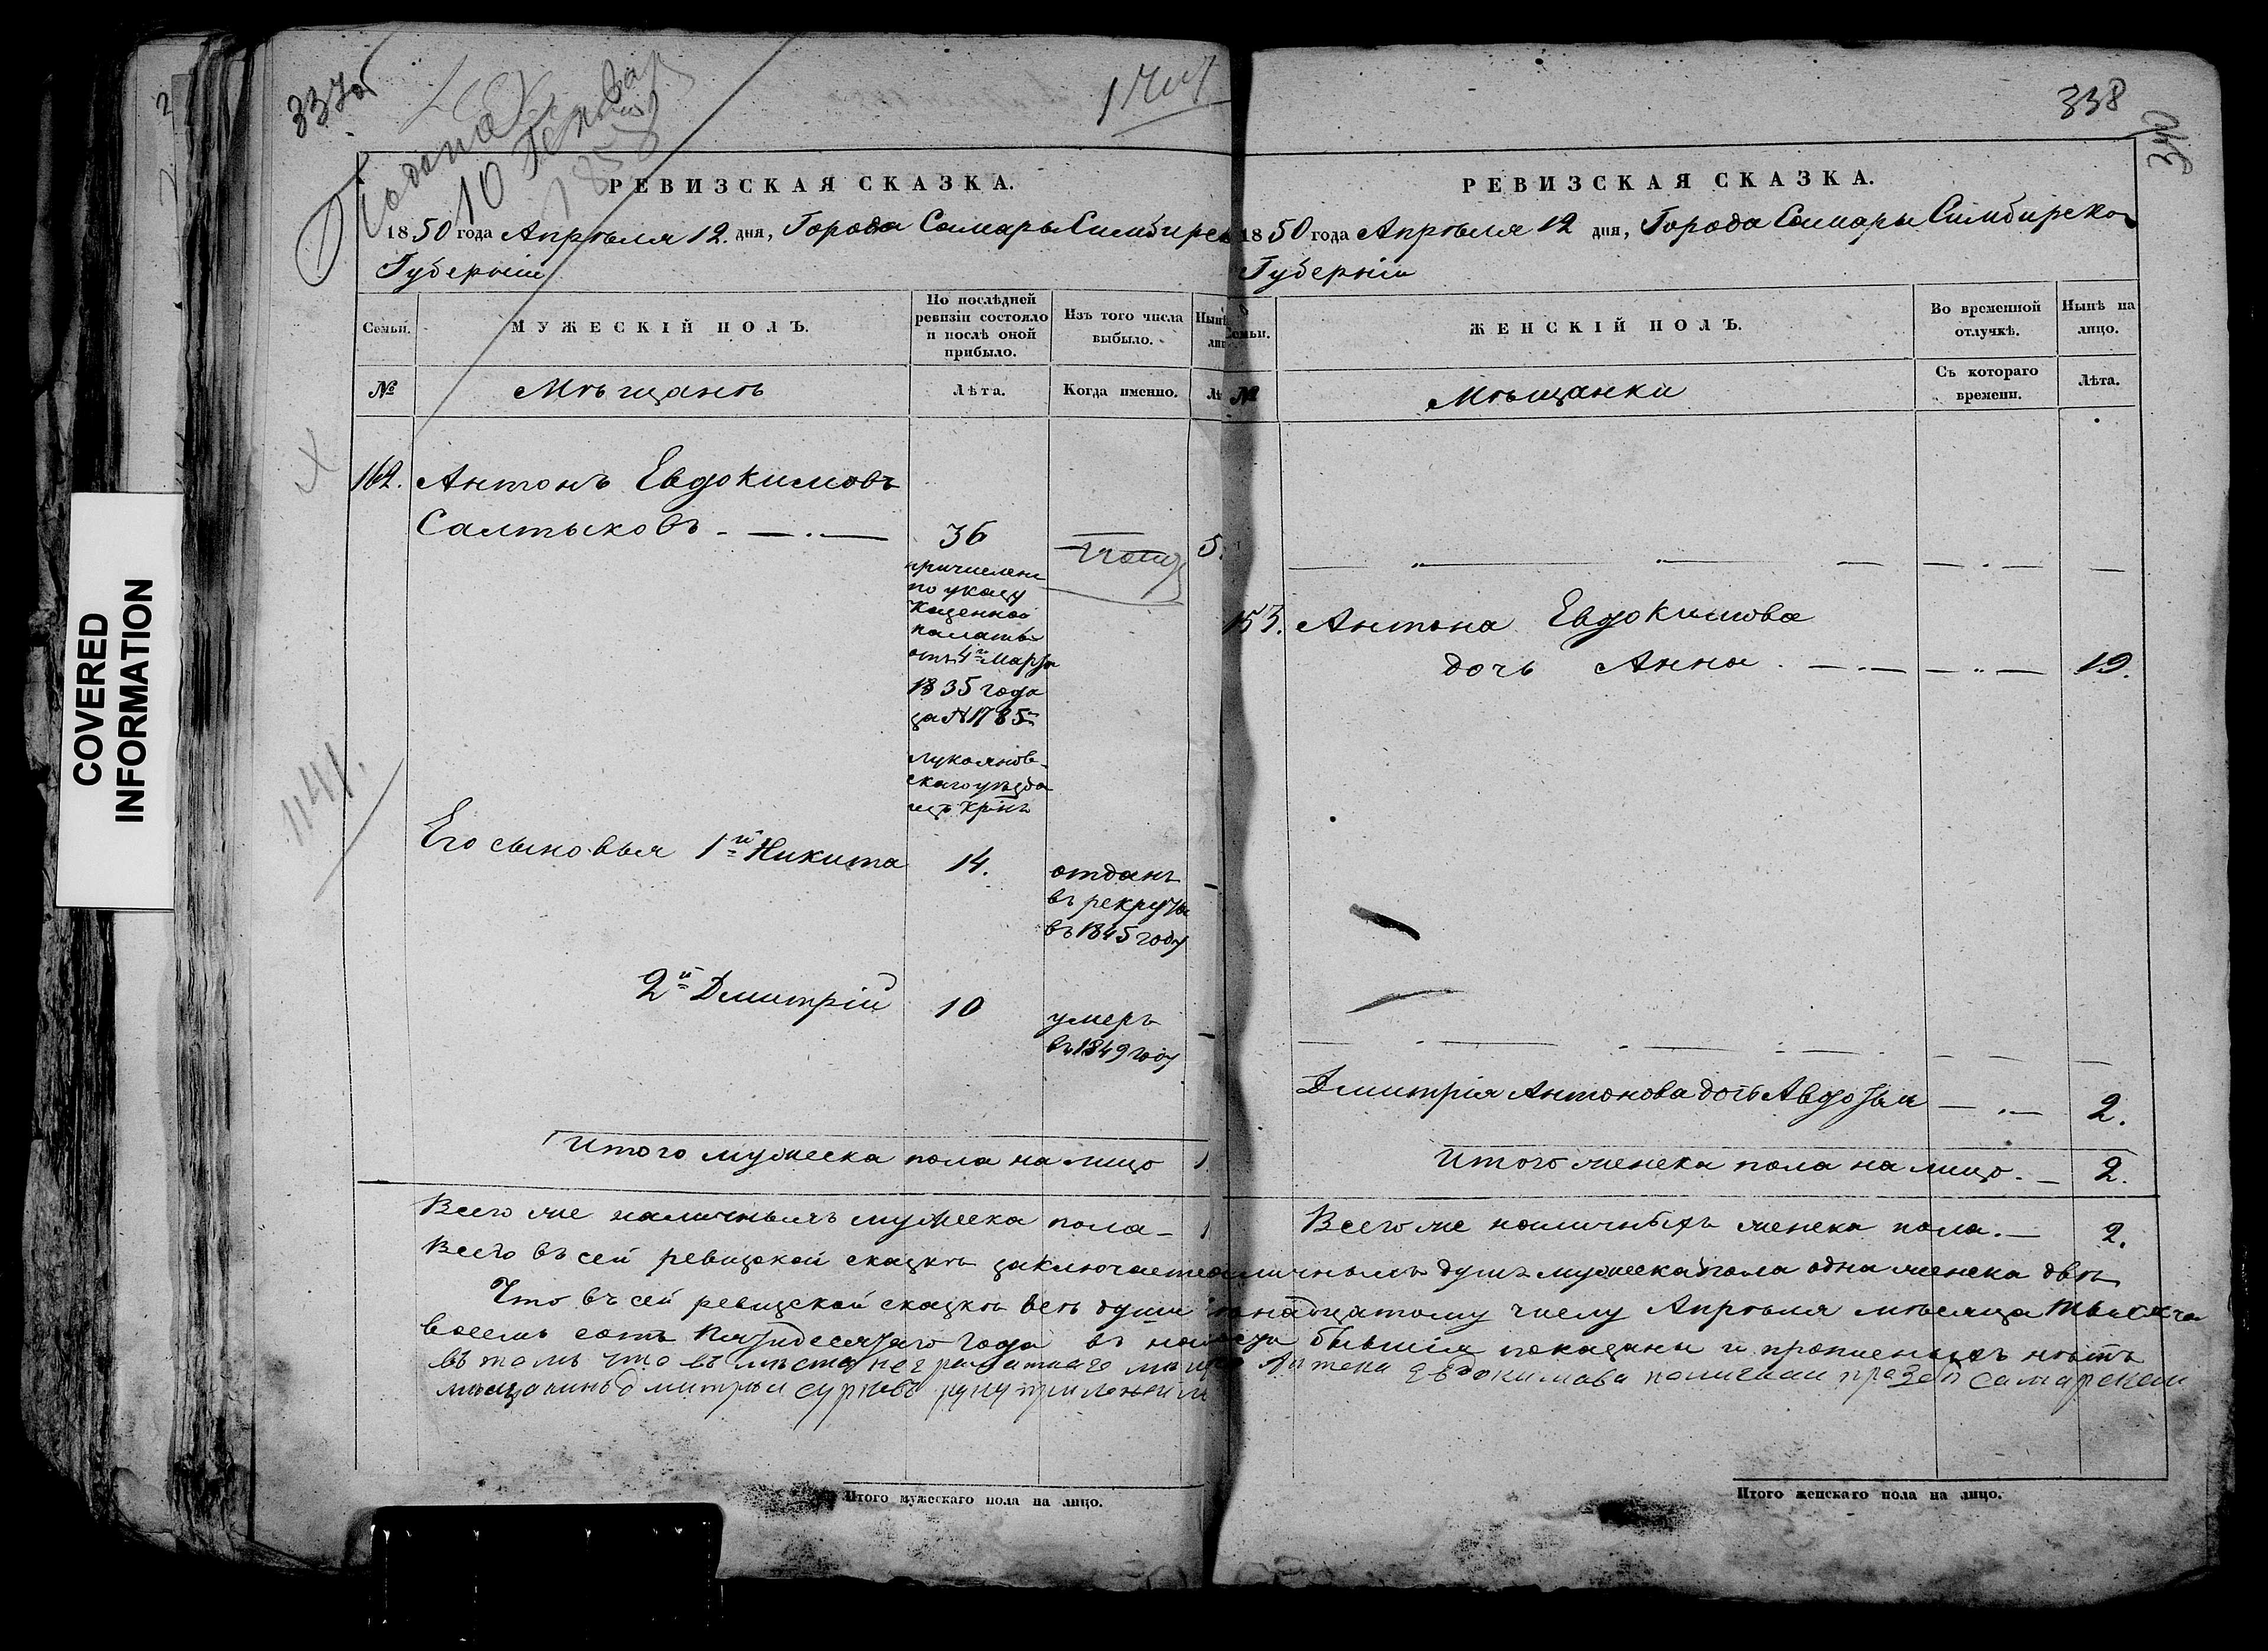 337об
1 чел
Подана
10 Генваря
1858
РЕВИЗСКАЯ СКАЗКА.
1850 года Апрѣля 12. дня, Города Самары Симбирск
Губерніи
Семьи.
МУЖЕСКІЙ ПОЛЪ.
По послѣдней ревизіи состояло и послѣ оной прибыло.
Изъ того числа выбыло.
№
Мѣщанъ
Лѣта.
Когда именно.
162. Антонъ Евдокимовъ
Салтыковъ - — . — 36
причисленъ
по указу
Казенной
палаты
отъ 4го Марта
1835 года
за №1785
Лукоянов-
скаго уѣзда
изъ Крнъ
Его сыновья 1й Никита 14. отданъ
въ рекруты
въ 1845 году
2й Дмитрій 10 умеръ
въ 1849 году
Итого мужеска пола на лицо 1
Всего же наличныхъ мужеска пола - 1
1141.
338
340
РЕВИЗСКАЯ СКАЗКА.
1850 года Апрѣля 12 дня, Города Самары Симбирской
Губерніи
ЖЕНСКІЙ ПОЛЪ.
Во временной отлучкѣ.
Нынѣ на лицо.
№
Мѣщанки
Съ котораго времени.
Лѣта.
Антона Евдокимова
дочь Анна . — . — — .. — 19.
Дмитрія Антонова дочь Авдотья — . — 2.
Итого женска пола на лицо. — 2.
Всего же наличныхъ женска пола. — 2.
Всего въ сей ревизской сказкѣ заключается наличныхъ душъ мужеска пола одна женска двѣ
Что въ сей ревизской сказкѣ всѣ души надцатому числу Апрѣля мѣсяца тысяча
восемь сотъ пятидесятаго года въ бывшія показаны и прописныхъ нѣтъ
въ томъ что въ мѣста неграматнаго Антона Евдокимова по личнай прозбѣ самарскаи
мѣщанинъ дмитреи руку приложил
Итого мужескаго пола на лицо.
Итого женскаго пола на лицо.
COVERED
INFORMATION